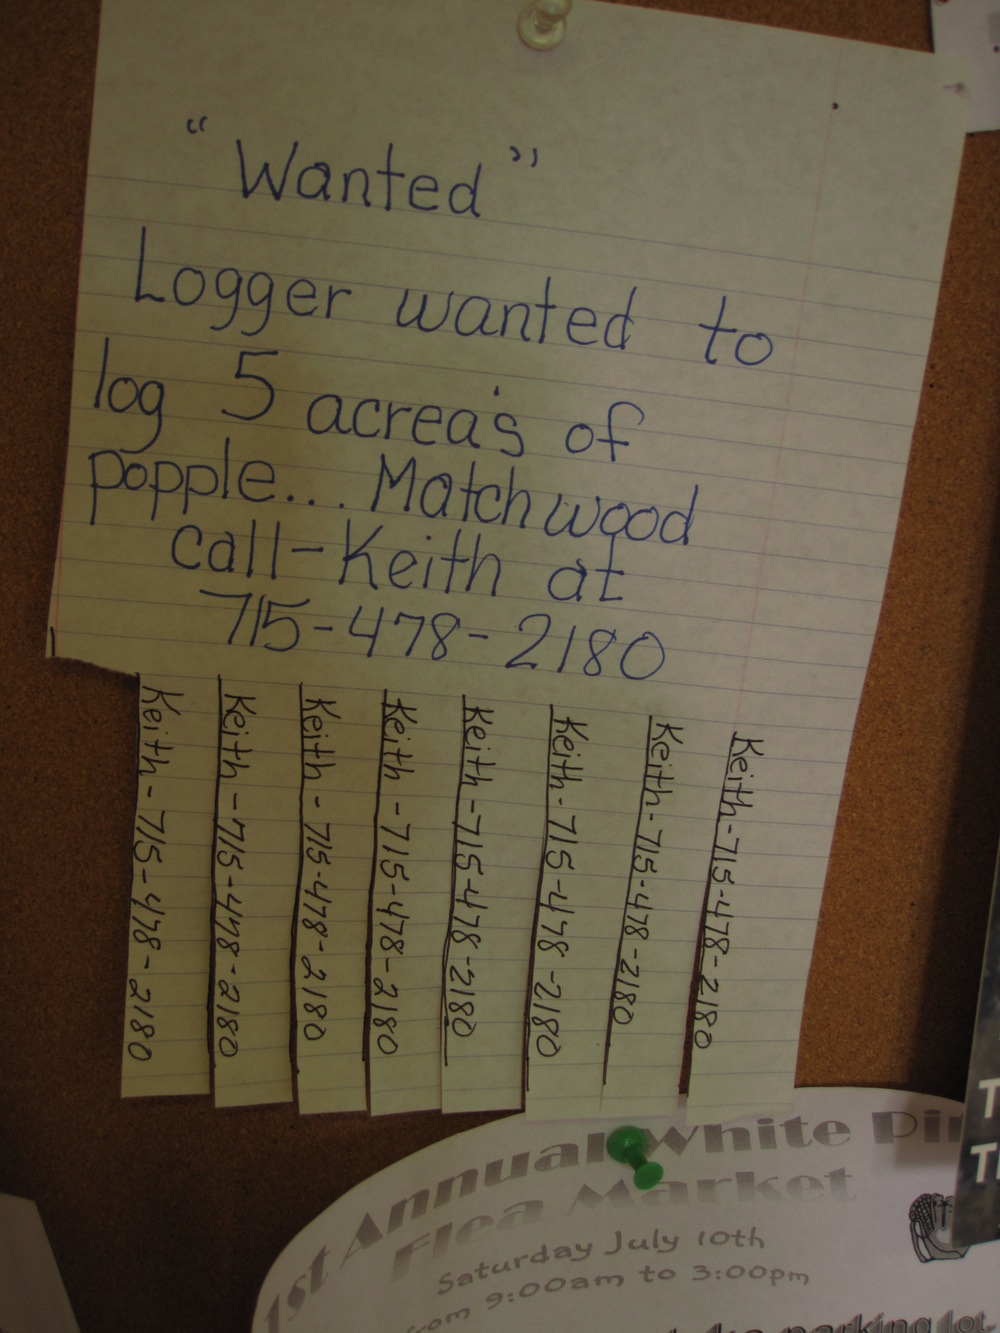 “Wanted”
Logger wanted to
log 5 acrea's of
popple.... Matchwood
call-Keith at
715-478-2180
Keith-715-478-2180
Keith-715-478-2180
Keith-715-478-2180
Keith-715-478-2180
Keith-715-478-2180
Keith-715-478-2180
Keith-715-478-2180
Keith-715-478-2180
1st Annual White
Flea Market
Saturday July 10th
from 9:00am to 3:00pm
parking lot